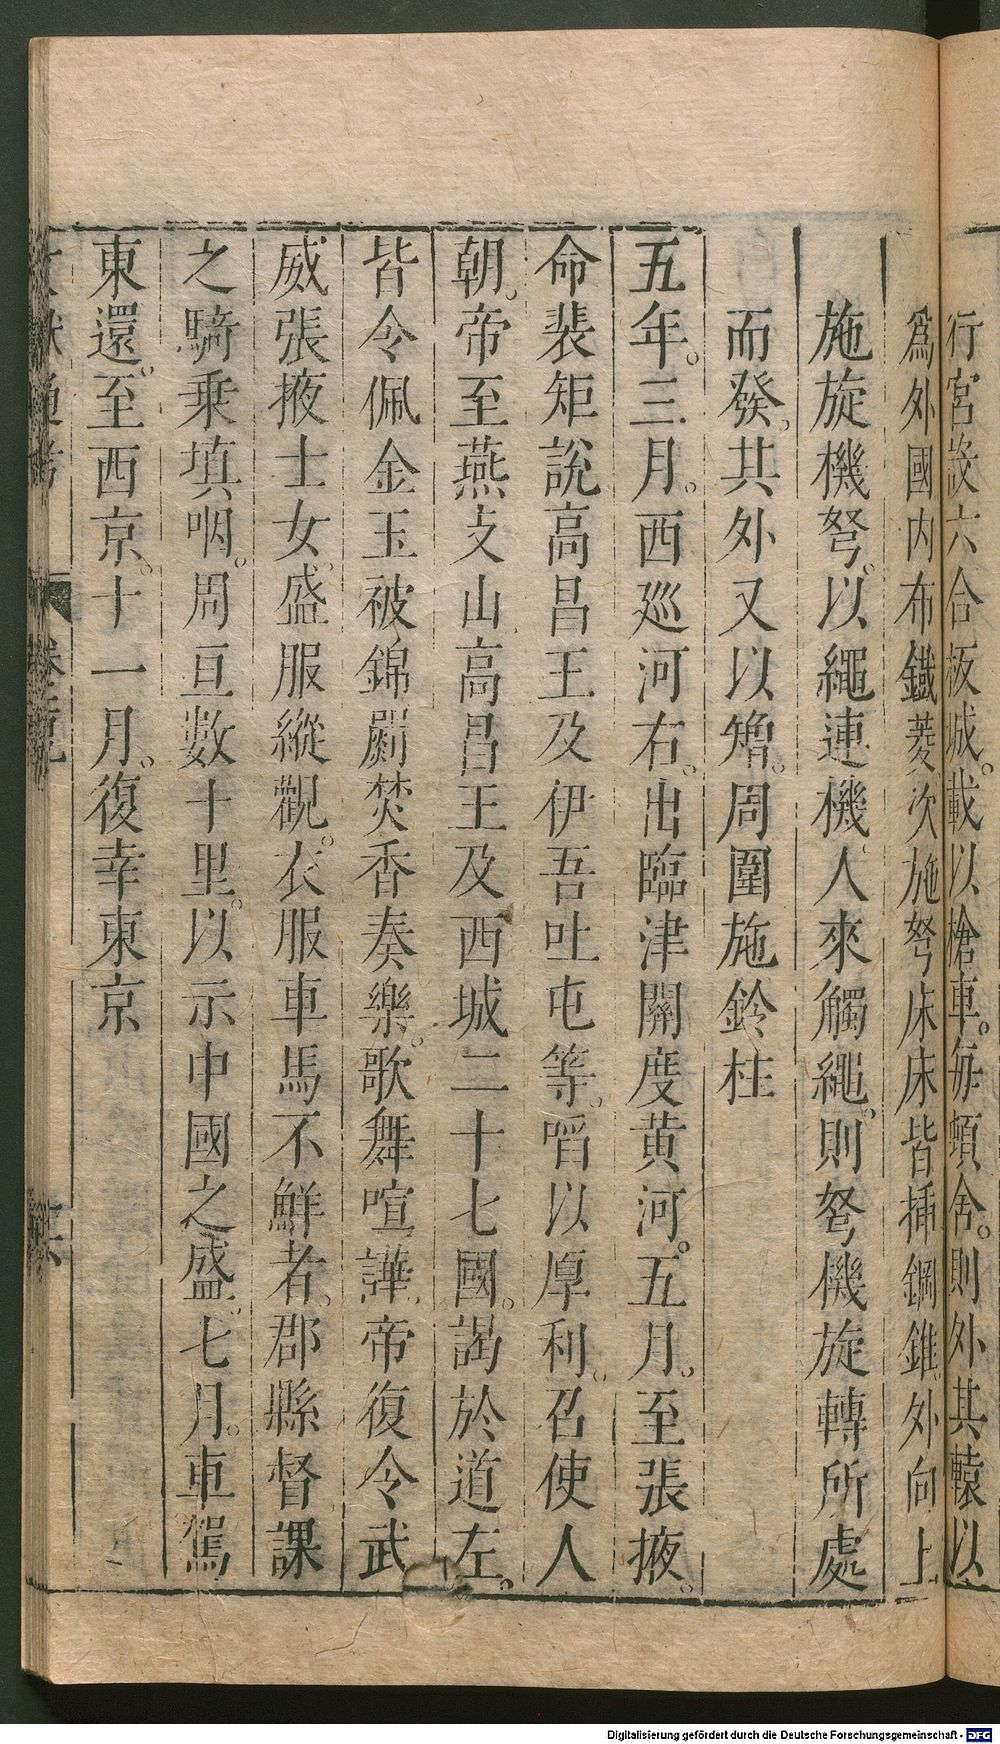 行宮設六合板城。載以槍車。每頓舍。則外其轅以
爲外國内布鐵菱次施弩床床皆揷鋼錐。外向上
施旋機弩。以繩連機。人來觸繩。則弩機旋轉所處
而發。其外又以矰。周圍施鈴柱
五年。三月。西廵河右。出臨津關度黄河。五月。至張掖。
命裴矩說高昌王及伊吾吐屯等。㗖以厚利。召使人
朝。帝至燕支山高昌王及西城二十七國。謁於道左。
皆令佩金玉被錦罽焚香奏樂。歌舞喧譁。帝復令武
威張掖士女。盛服縱觀。衣服車馬不鮮者。郡縣督課
之騎乗填咽。周亘數十里。以示中國之盛。七月。車駕
東還。至西京。十一月。復幸東京
文獻通考
Digitalisierung gefördert durch die Deutsche Forschungsgemeinschaft - DFG